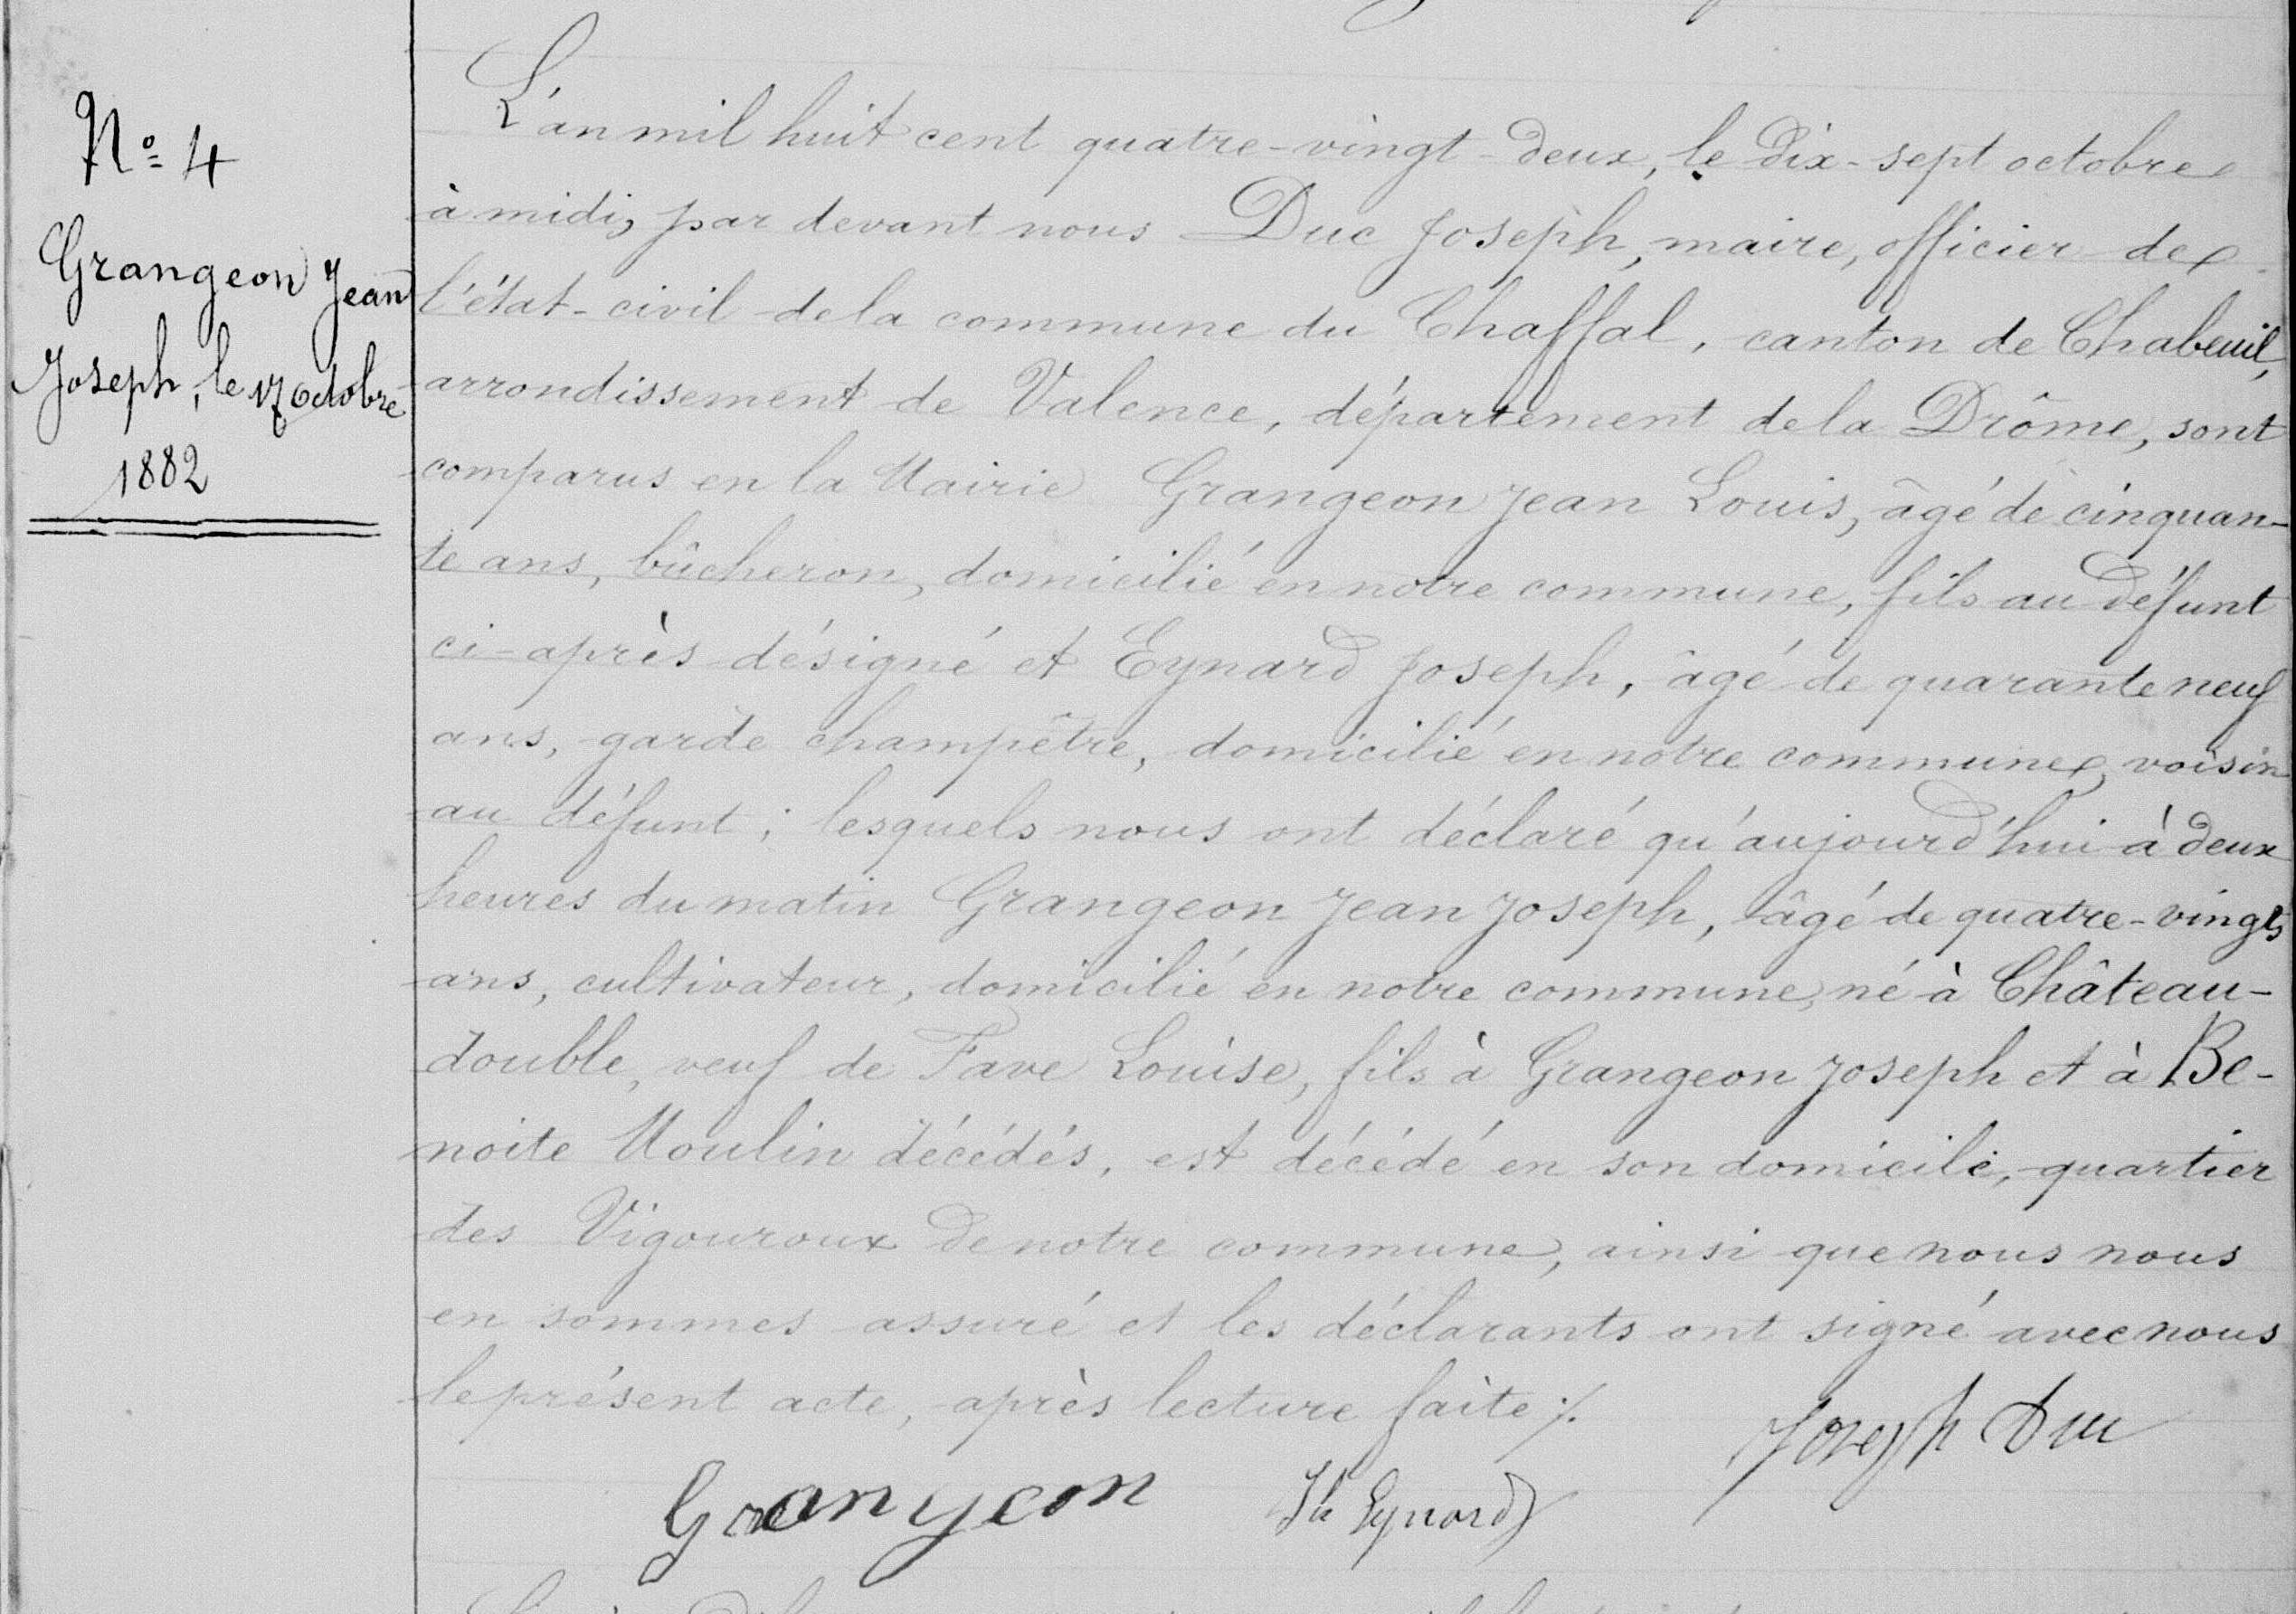 N° 4
Grangeon Jean
Joseph, le 17 octobre
1882
L'an mil huit cent quatre-vingt-deux, le dix-sept octobre
à midi, par devant nous Duc Joseph, maire, officier de
l'état-civil de la commune du Chaffal, canton de Chabeuil,
arrondissement de Valence, département de la Drôme, sont
comparus en la Mairie Grangeon Jean Louis, âgé de cinquan-
te ans, bûcheron, domicilié en notre commune, fils au défunt
ci-après désigné et Eynard Joseph, âgé de quarante neuf
ans, garde champêtre, domicilié en notre commune, voisin
au défunt ; lesquels nous ont déclaré qu'aujourd'hui à deux
heures du matin Grangeon Jean Joseph, âgé de quatre-vingts
ans, cultivateur, domicilié en notre commune, né à Château-
double, veuf de Fave Louise, fils à Grangeon Joseph et à Be-
noite Moulin décédés, est décédé en son domicile, quartier
des Vigouroux de notre commune, ainsi que nous nous
en sommes assuré et les déclarants ont signé avec nous
le présent acte, après lecture faite ./.
Joseph Duc
Grangeon Jh Eynard